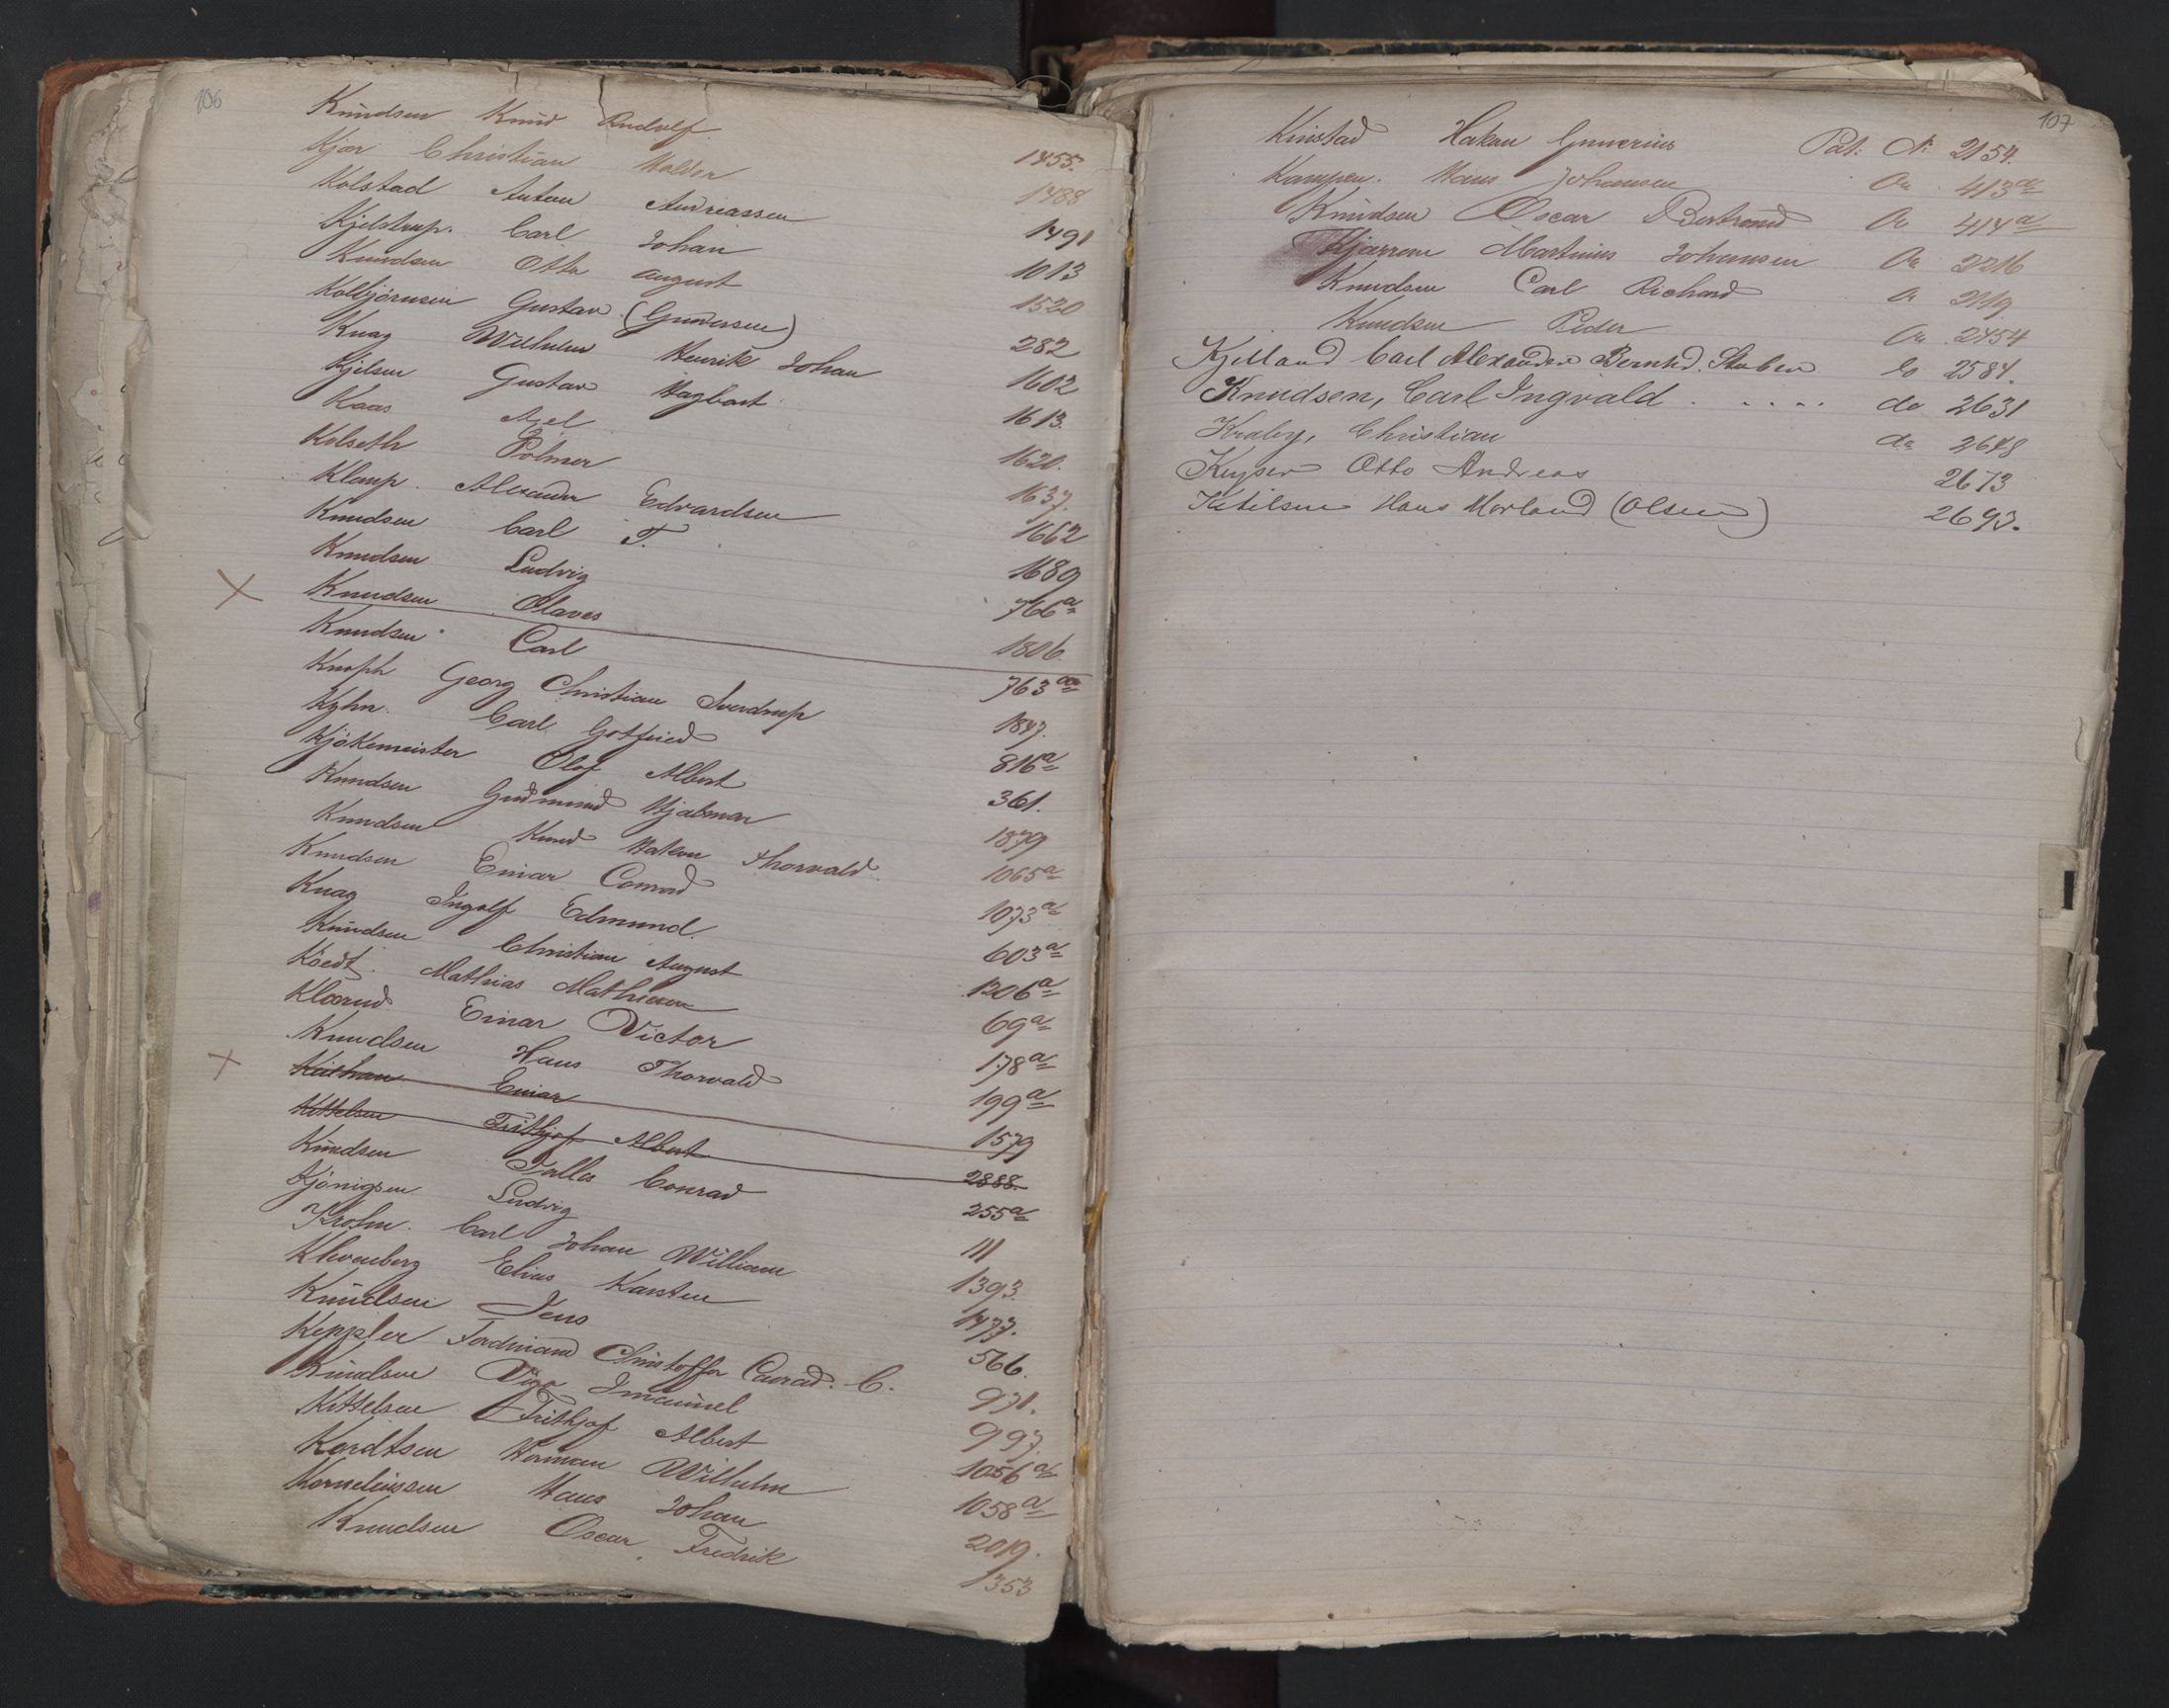 106
Knudsen Knud Rudolf 1455.
Kjær Christian Halvor 1488
Kolstad Anton Andreassen 1491
Kjelstrup. Carl Johan 1013
Knudsen Otto August 1520
Kolbjörnsen Gustav (Gundersen) 282
Knag Wilhelm Henrik Johan 1602
Kjelsen Gustav Hagbart 1613.
Kaas Axel 1620.
Kolseth Polmer 1637.
Klemp. Alexander Edvardsen 1662
Knudsen Carl T. 1689
Knudsen Ludvig 766a
X Knudsen Olaves 1806
Knudsen Carl 763aa
Knoph Georg Christian Sverdrup 1847.
Kyhn. Carl Gotfried 816a
Kjökemeister Olaf Albert 361.
Knudsen Gudmund Hjalmar 1879
Knudsen Knud Hakon Thorvald 1065a
Knudsen Einar Conrad 1073a
Knag Ingolf Edmund. 603a
Knudsen Christian August 1206a
Koedt. Mathias Mathiesen 69a
Klaarud Einar Victor 178a
Knudsen Hans Thorvald 199a
X Einar 1579
Kittelsen Frithjof Albert 2888.
Knudsen Falle Conrad 255a
Kjönigsen Ludvig 111
Krohn. Carl Johan William 1393.
Klevenberg Elias Karsten 1477.
Knudsen Jens 566.
Keppler Ferdinand Christoffer Conrad. C. 971.
Knudsen Vigo Imanuel 997.
Kittelsen Frithjof Albert 1056a
Kordtsen Herman Wilhelm 1058a
Korneliussen Hans Johan 2019.
Knudsen Oscar Fredrik 1353
107
Kinstad Hakan Gunerius Pat: No 2154.
Kampen. Hans Johansen Do 413a
Knudsen Oscar Bertrand Do 414a
Kjærren Martinius Johansen Do 2216
Knudsen Carl Richard Do 2119.
Knudsen Peder Do 2454
Kjelland Carl Alexander Bernhd. Stuben Do 2584.
Knudsen, Carl Ingvald . . . . . do 2631
Kraby, Christian do 2648
Keyser Otto Andreas 2673
Ketilsen Hans Morland (Olsen) 2693.